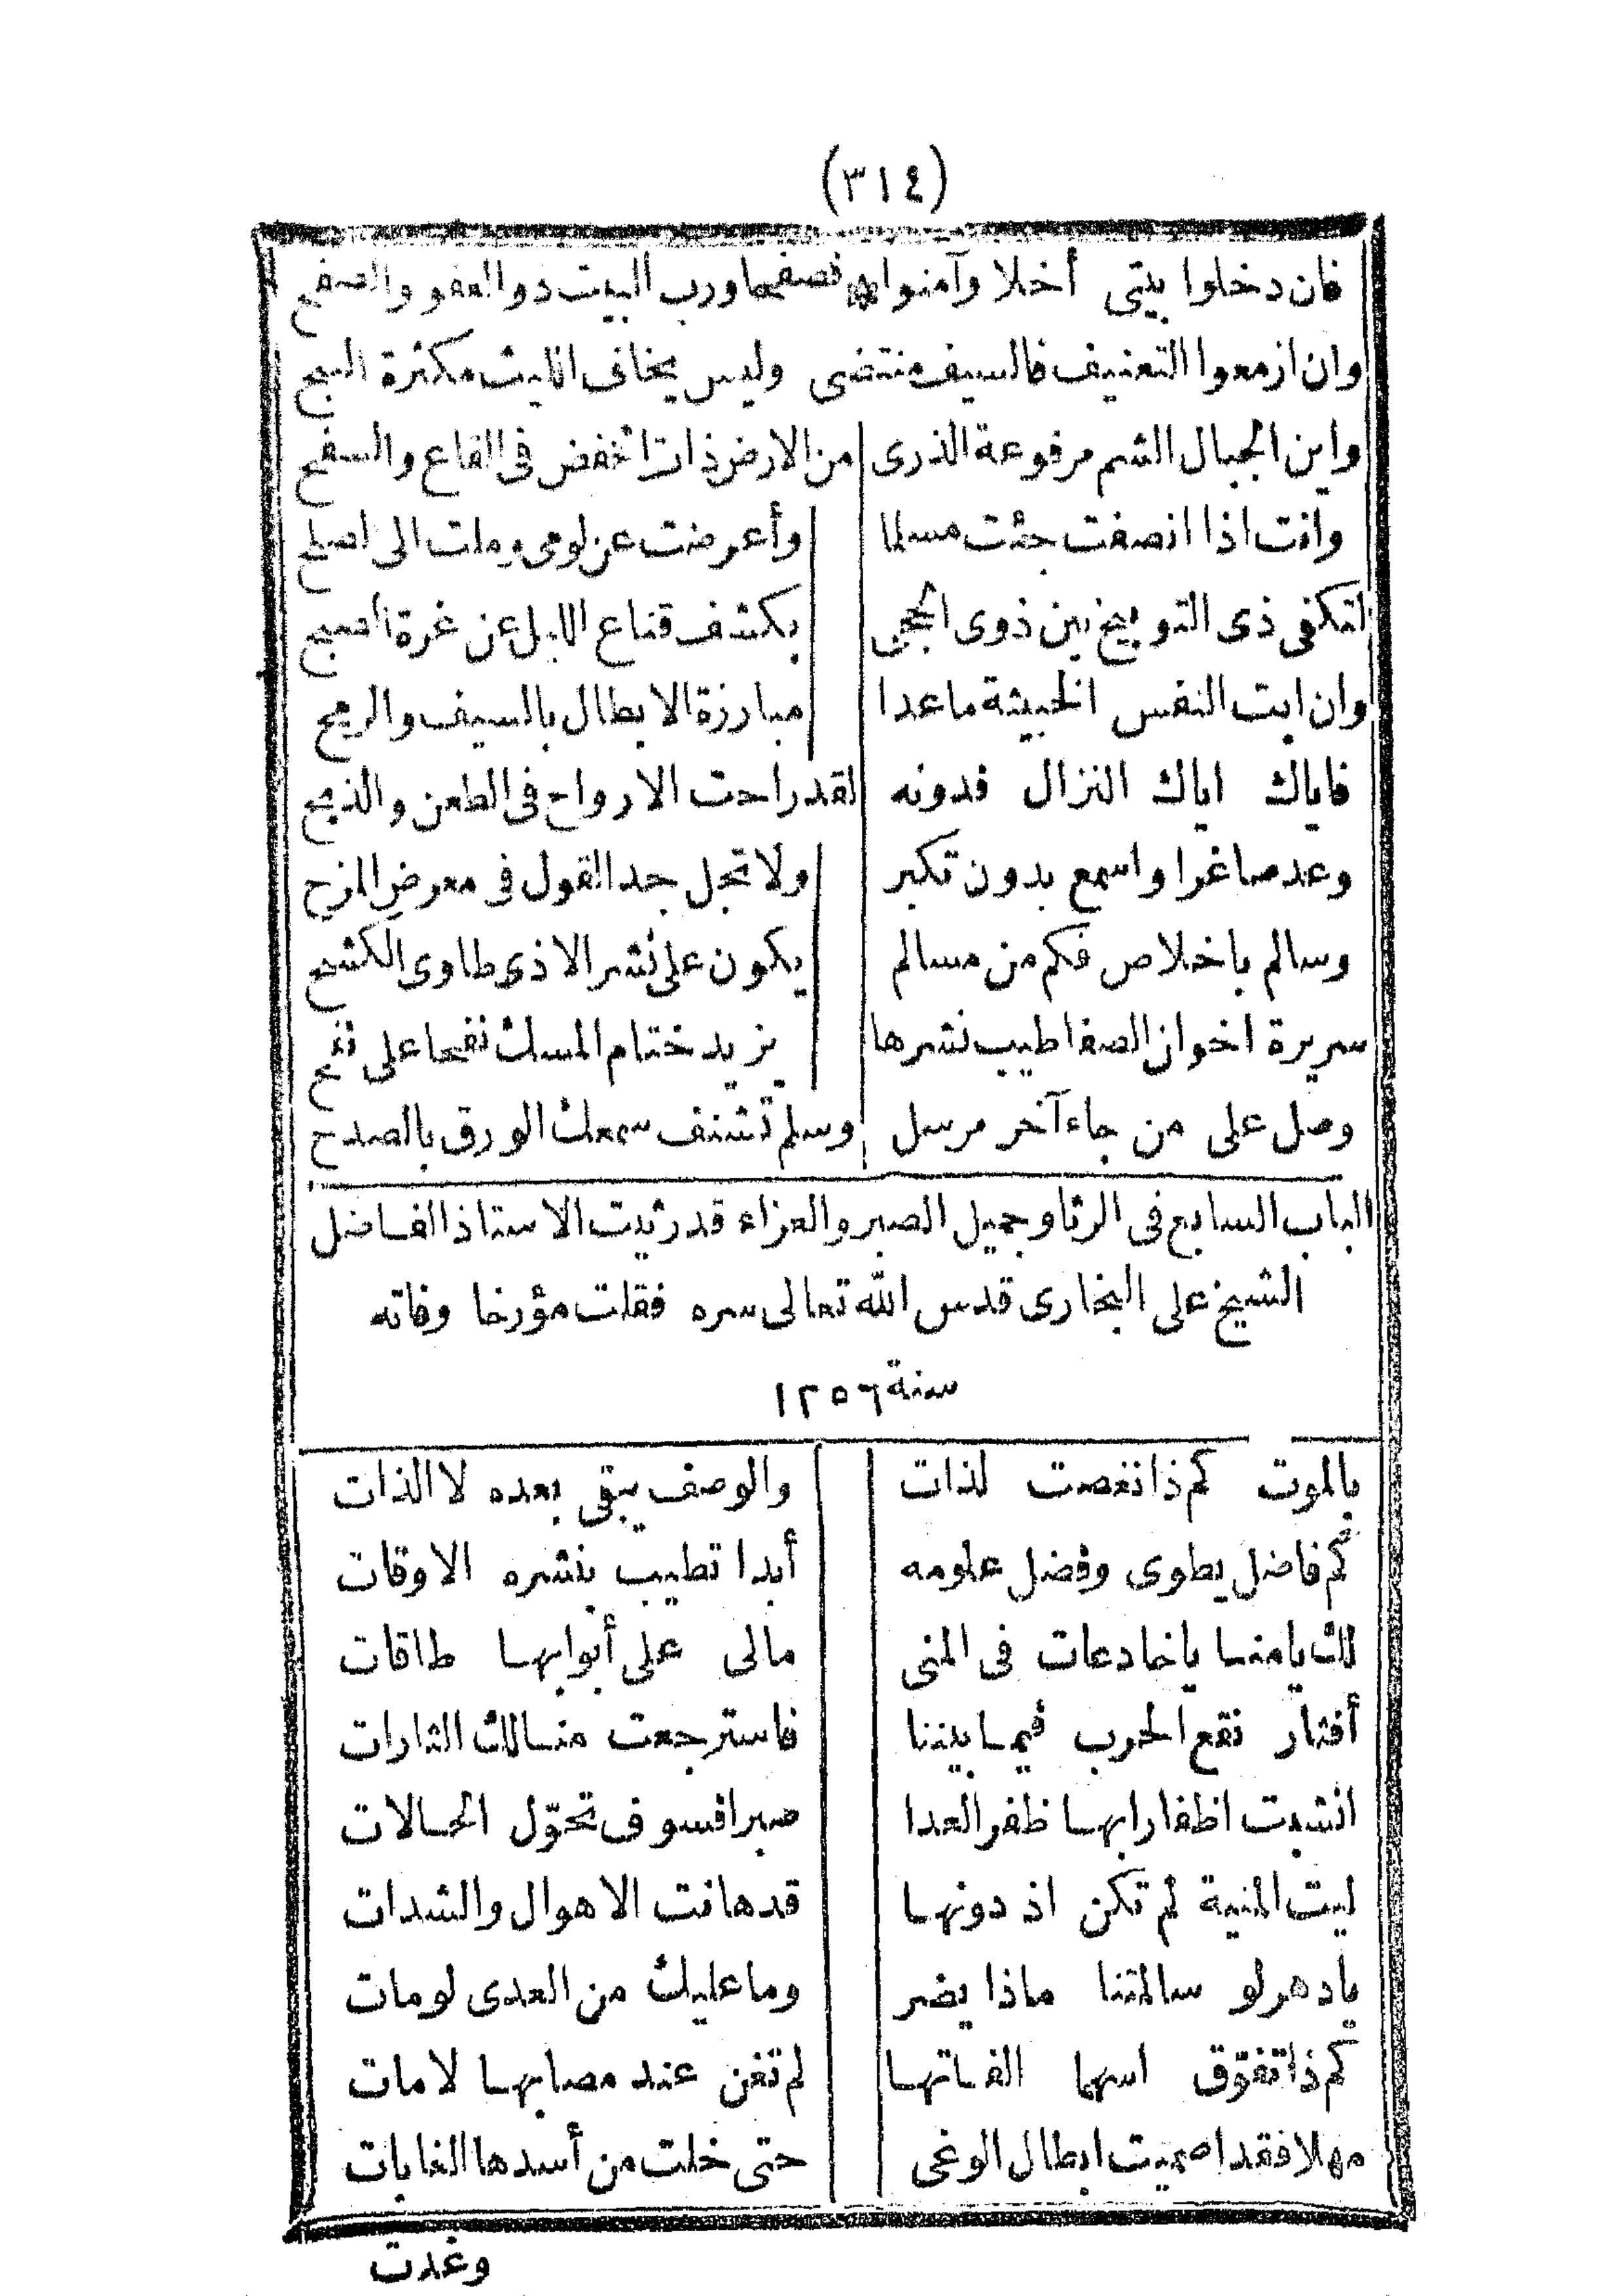 (٣١٤)
فان دخلوا بيتى أخلا وآمنوا فصفحا ورب البيت ذو العفو والصفح
وان ازمعوا التعنيف فالسيف منتضى وليس يخاف الليث مكثرة النبح
واين الجبال الشم مرفوعة الذرى من الارض ذات الخفض فى القاع والسفح
وانت اذا انصفت جئت مسلما وأعرضت عن لومى وملت الى اصلح
لتكفى ذى التوبيخ بين ذوى الحجى بكشف قناع الليل عن غرة الصبح
وان ابت النفس الخبيثة ما عدا مبارزة الابطال بالسيف والرمح
فاياك اياك النزال فدونه لقد راحت الارواح فى الطعن والذبح
وعد صاغرا واسمع بدون تكبر ولا تجل جد القول فى معرض المزح
وسالم باخلاص فكم من مسالم يكون على نشر الاذى طاوى الكشح
سريرة اخوان الصفا طيب نشرها يزيد ختام المسك نفحا على نفح
وصل على من جاء آخر مرسل وسلم تشنف سمعك الورق بالصدح
الباب السابع فى الرثا وجميل الصبر والعزاء قد رثيت الاستاذ الفاضل
الشيخ على البخارى قدس الله تعالى سره فقلت مؤرخا وفاته
سنة ١٢٥٦
بالموت كم ذا نغصت لذات والوصف يبقى بعده لا الذات
كم فاضل يطوى وفضل علومه أبدا تطيب بنشره الاوقات
لك يا منسا يا خادعات فى المنى مالى على أبوابها طاقات
أفثار نقع الحرب فيما بيننا فاسترجعت منالك الثارات
انشبت اظفارا بها ظفر العدا صبرا فسوف تحوّل الحالات
ليت المنية لم تكن اذ دونها قد هانت الاهوال والشدات
يا دهر لو سالمتنا ماذا يضر وما عليك من العدى لومات
كم ذا تفوّق اسهما الفاتها لم تغن عند مصابها لامات
مهلا فقد اصميت ابطال الوغى حتى خلت من أسدها الغابات
وغدت